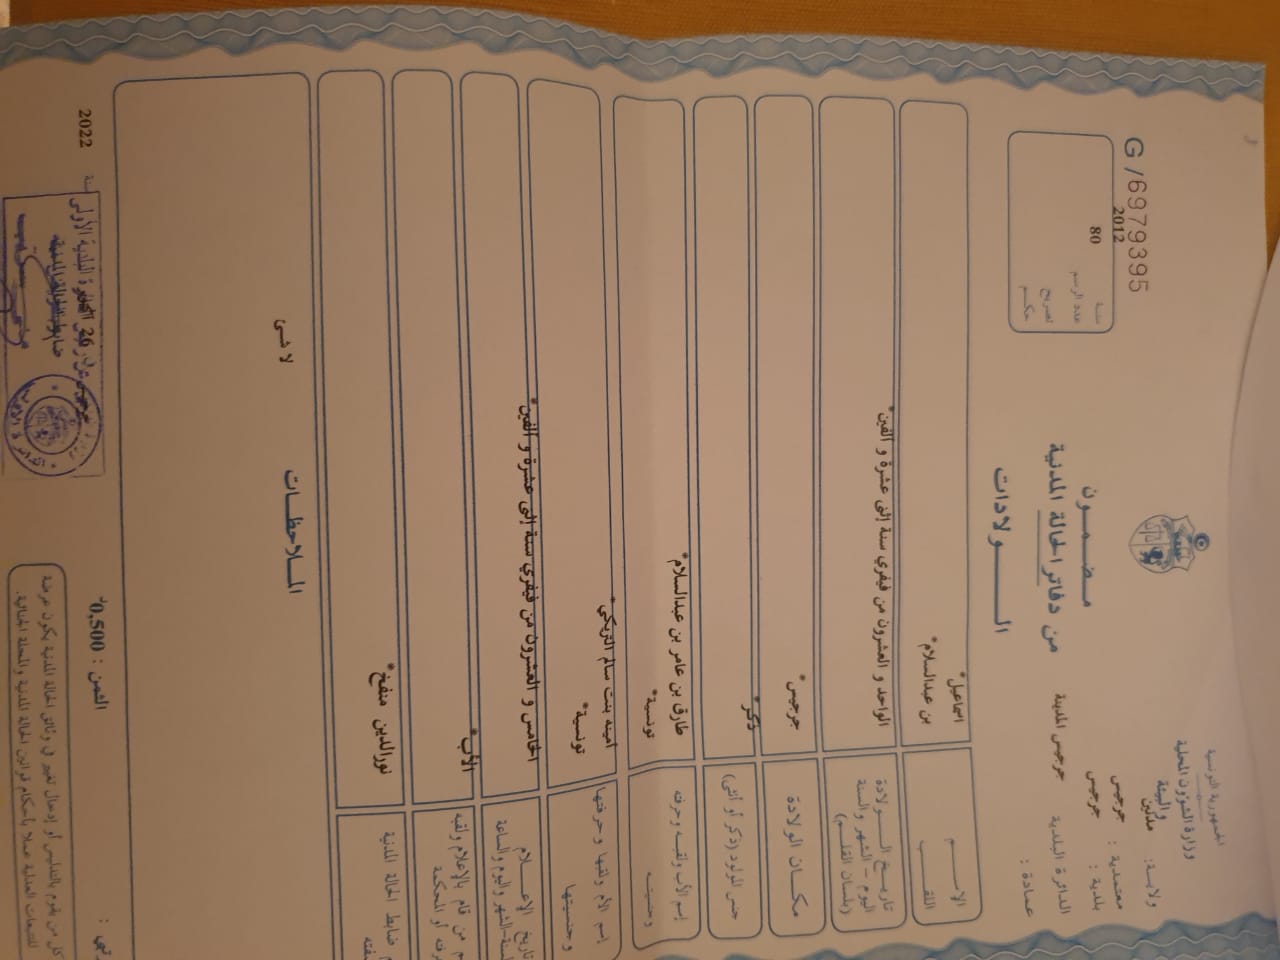 الجمهورية التونسية
وزارة الشؤون المحلية
والبيئة
ولاية: مدنين
معتمدية : جرجيس
بلدية : جرجيس
الدائرة البلدية جرجيس المدينة
عمادة :
مضمون
من دفاتر الحالة المدنية
الولادات
G/6979395
سنة 2012
عدد الرسم 80
تصريح
حكم
الاسم اسماعيل*
اللقب بن عبدالسلام*
تاريخ الولادة
اليوم - الشهر والسنة
(بلسان القلم)
الواحد و العشرون من فيفري سنة إثنى عشرة و ألفين*
مكان الولادة جرجيس*
جنس المولود (ذكر أو أنثى) ذكر*
إسم الأب ولقبه وحرفته طارق بن عامر بن عبدالسلام*
وجنسيته تونسية*
إسم الأم ولقبها وحرفتها أمينه بنت سالم التريكي*
وجنسيتها تونسية*
تاريخ الإعلام
السنة-الشهر واليوم والساعة
الخامس و العشرون من فيفري سنة إثنى عشرة و ألفين*
من قام بالإعلام ولقبه
أو المحكمة
الأب*
ضابط الحالة المدنية نورالدين منفخ*
الملاحظات
لا شئ
الثمن : 0,500د
سنة 2022
26
ضابط الحالة المدنية
كل من يقوم بالتدليس أو إدخال تغيير في وثائق الحالة المدنية يكون عرضة
للتتبعات العدلية عملا بأحكام قوانين الحالة المدنية والمجلة الجنائية.